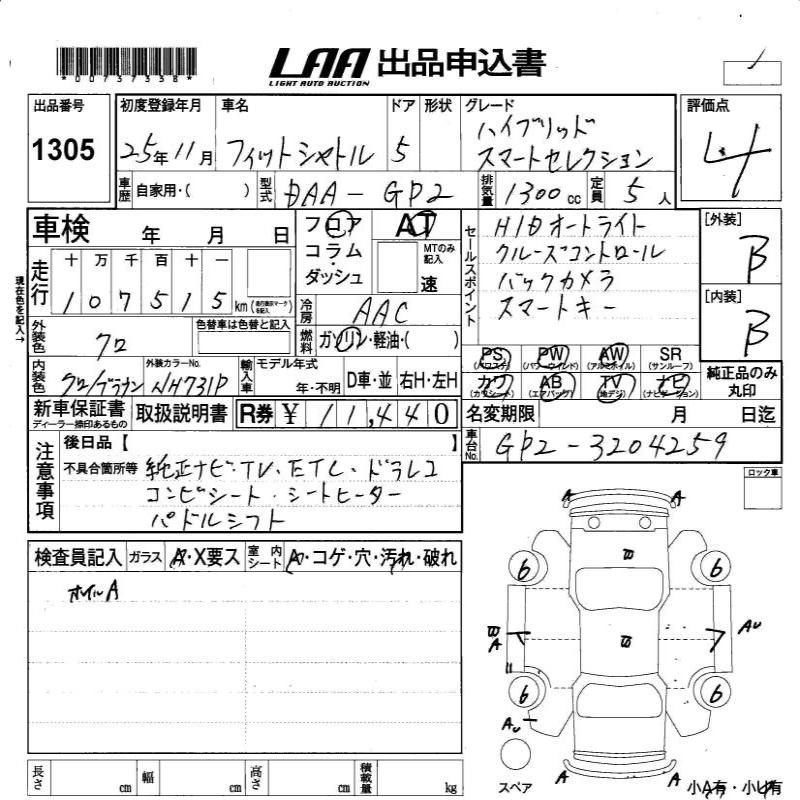 LAA 出品申込書
LIGHT AUTO AUCTION
*00737338*
出品番号 初度登録年月 車名 ドア 形状 グレード 評価点
1305 25年11月 フィットシャトル 5 ハイブリッド 4
スマートセレクション
車歴 自家用・( ) 型式 DAA-GP2 排気量 1300cc 定員 5人
車検 年 月 日 フロア AT セールスポイント HIDオートライト [外装]
コラム・ MTのみ記入 クルーズコントロール B
ダッシュ 速 バックカメラ
現在色を記入→
走行 十 万 千 百 十 一
1 0 7 5 1 5 km (走行表示マークを記入) 冷房 AAC スマートキー [内装]
外装色 クロ 色替車は色替と記入 燃料 ガソリン・軽油・( ) B
PS PW AW SR
(パワステ) (パワーウインド) (アルミホイル) (サンルーフ)
内装色 クロ/プラナン 外装カラーNo. NH731P 輸入車 モデル年式 年・不明 D車・並 右H・左H
カワ AB TV ナビ 純正品のみ丸印
(カワシート) (エアバッグ) (地デジ) (ナビゲーション)
新車保証書 取扱説明書 R券 ¥11,440 名変期限 月 日迄
ディーラー捺印あるもの
車台No. GP2-3204259
注意事項 後日品【 】
不具合箇所等 純正ナビ・TV・ETC・ドラレコ ロック車
コンビシート・シートヒーター
パドルシフト
A A
検査員記入 ガラス A・X要ス 室内シート A・コゲ・穴・汚れ・破れ
ホイルA
6 6
A AU
6 6
AU
A A
スペア
小A有・小U有
長さ cm 幅 cm 高さ cm 積載量 kg